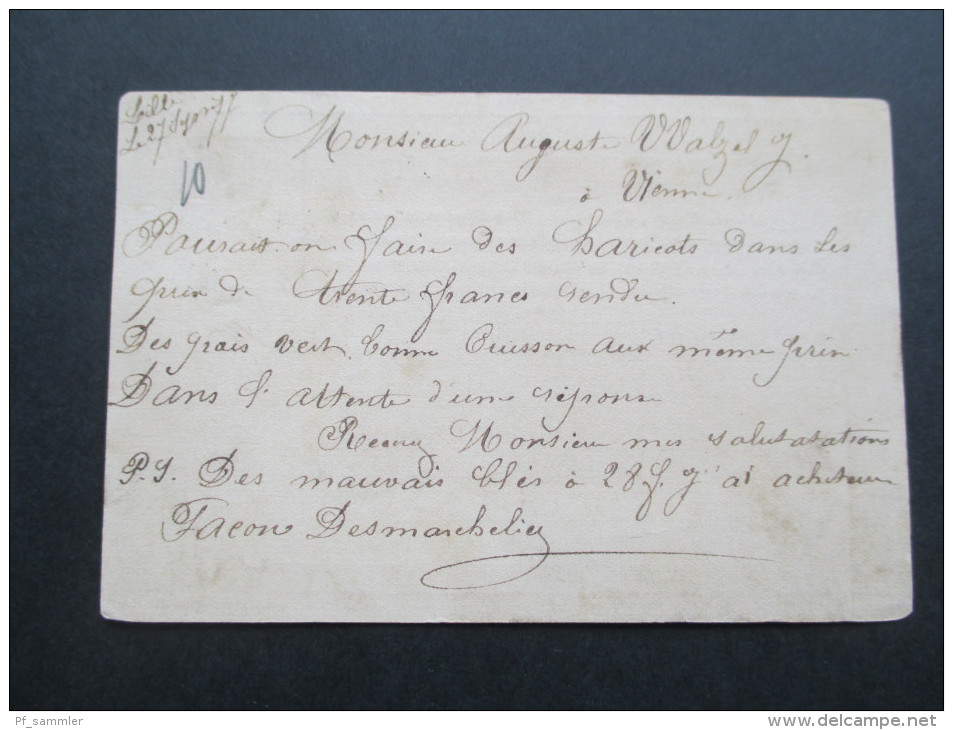 Lille
Le 27
10
Monsieur Auguste Walzel J.
à Vienne.
Pourait on faire des haricots dans les
prix de trente francs rendu.
Des pois vert bonne Cuisson aux même prix
Dans l'attente d'une réponse
Recevez Monsieur mes salutatations
P.S. Des mauvais blés à 28 f. j'ai acheteur
Facon Desmarchelier
Pf_sammler
www.delcampe.net